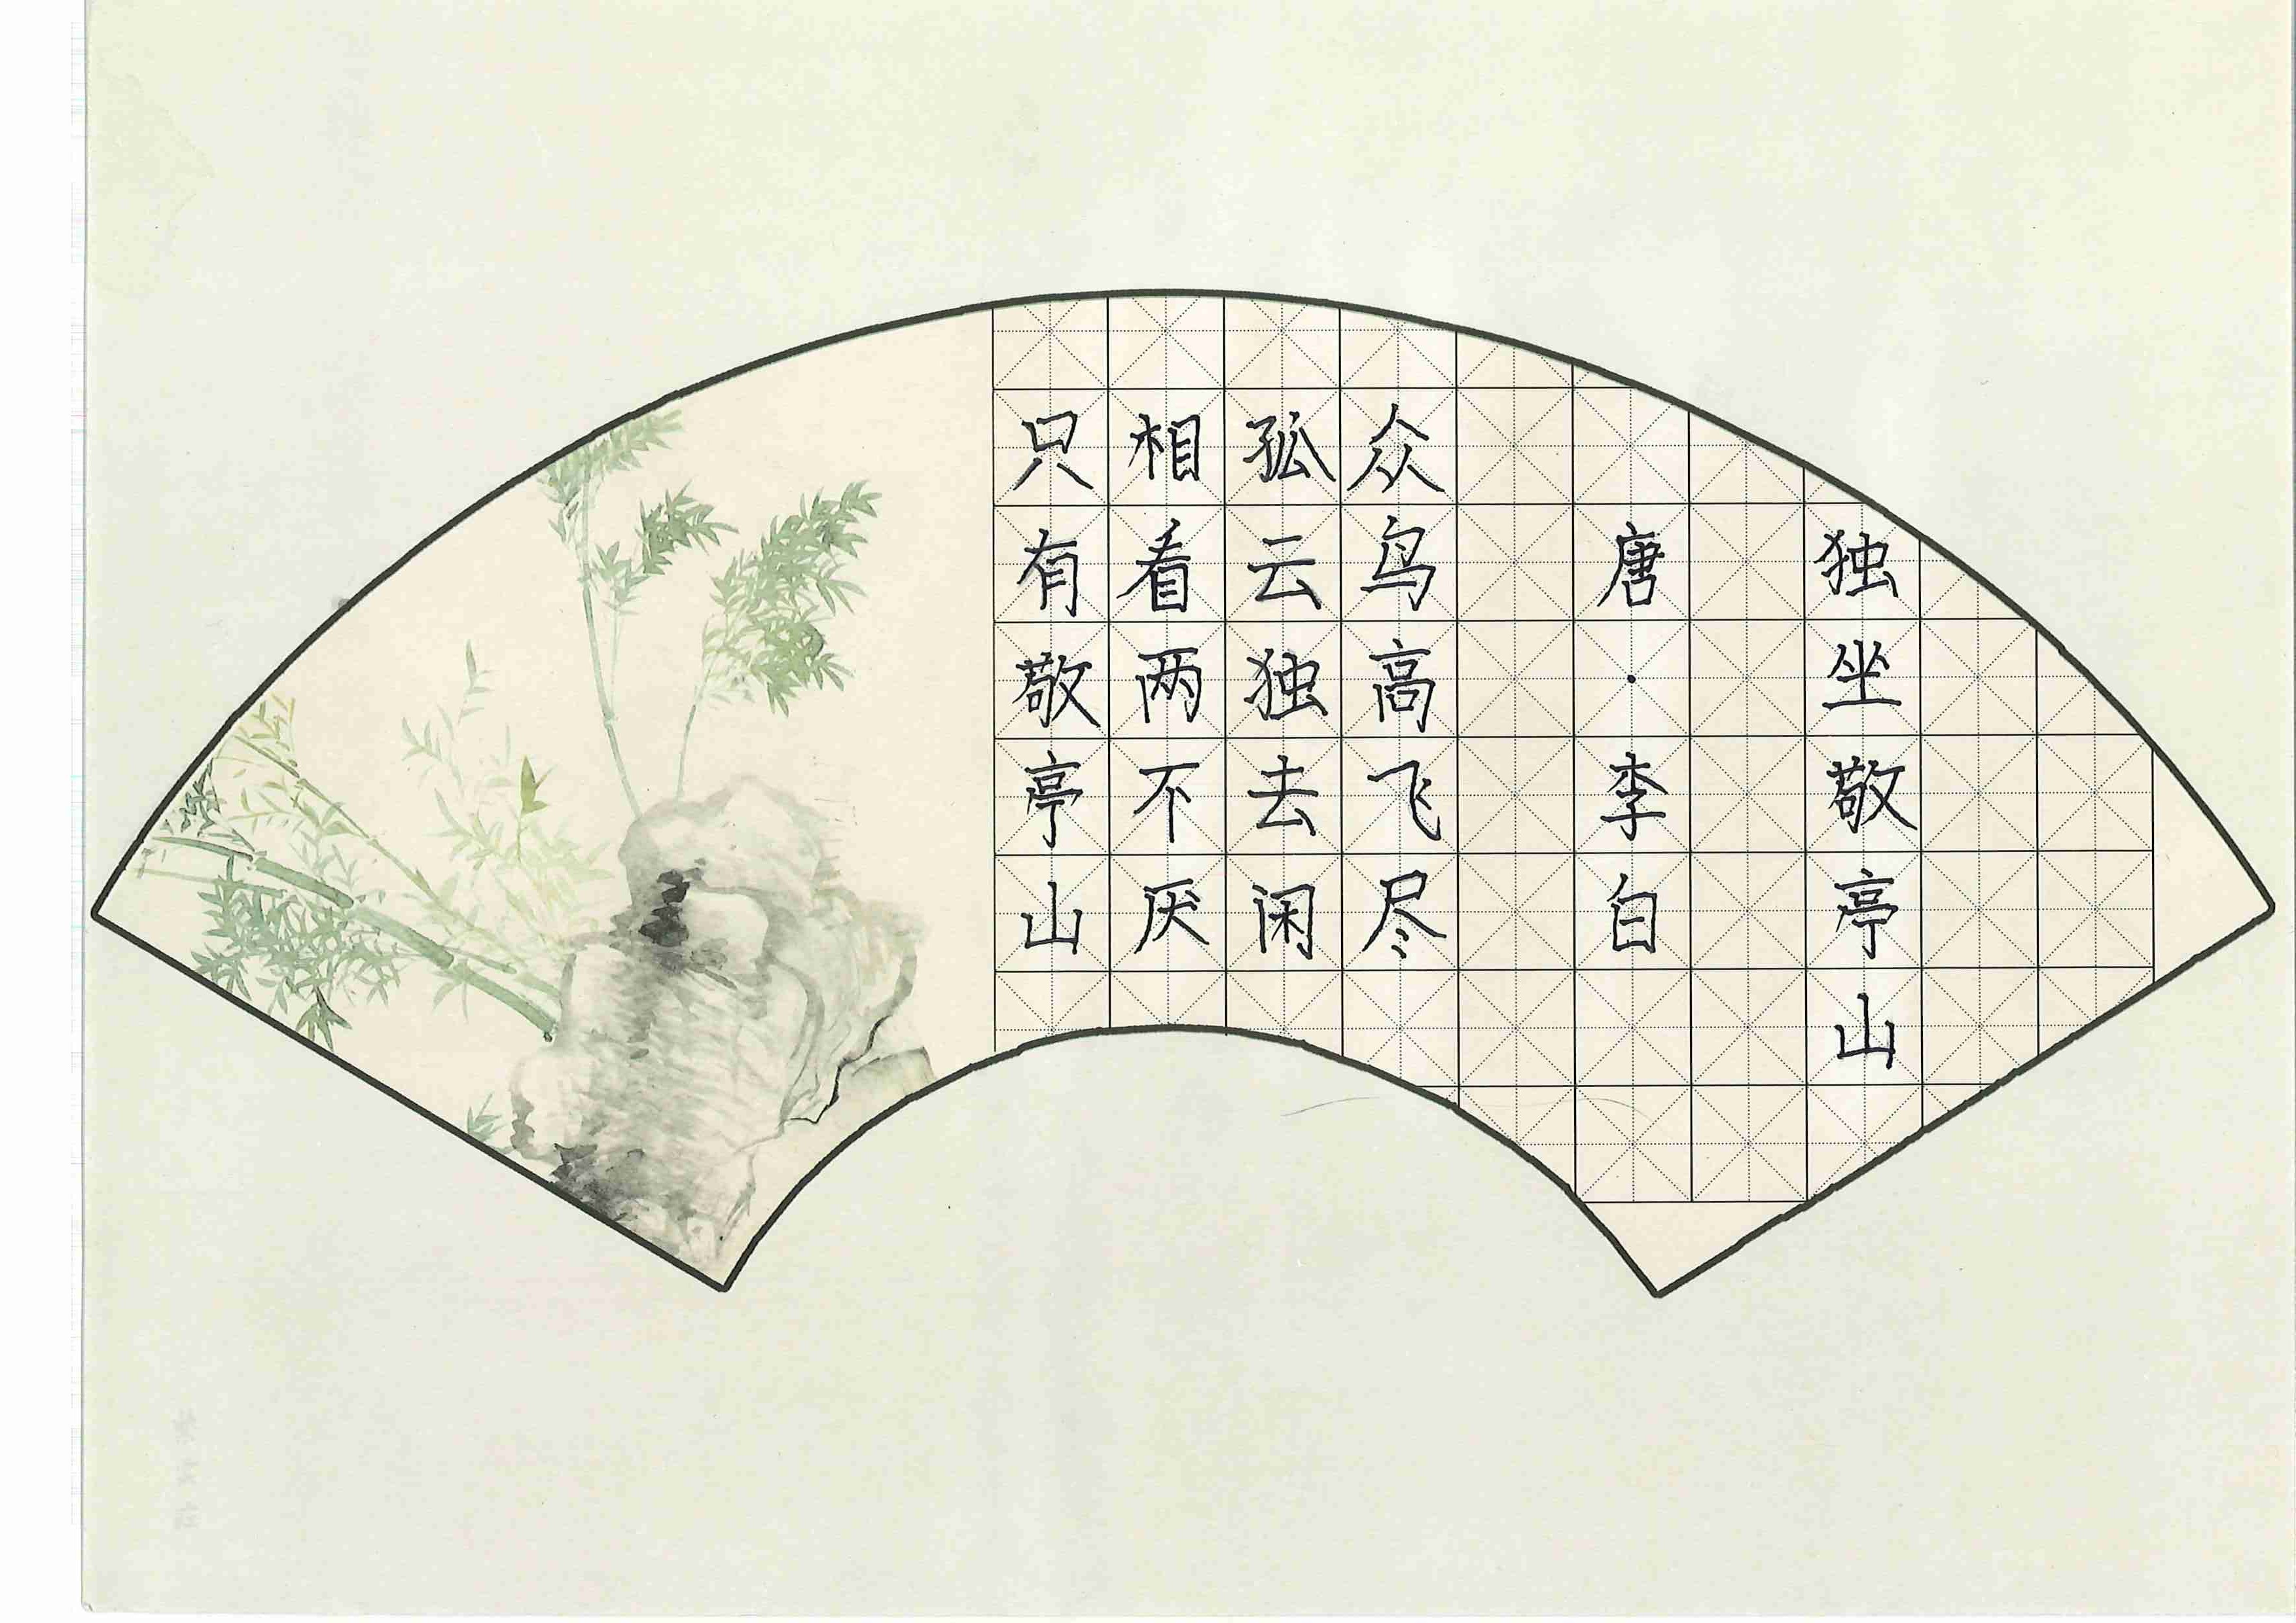 独坐敬亭山
唐·李白
众鸟高飞尽
孤云独去闲
相看两不厌
只有敬亭山